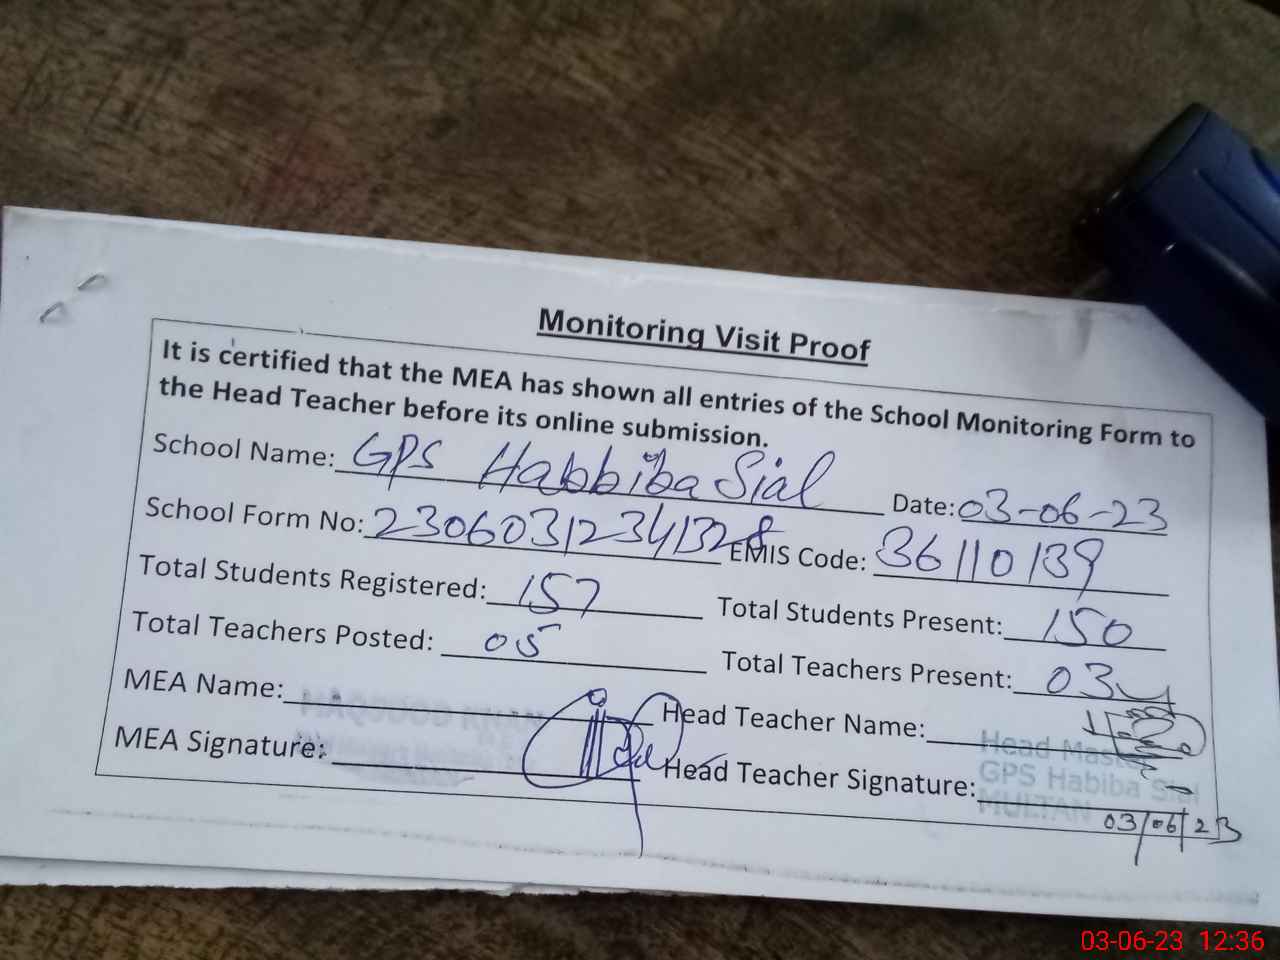 Monitoring Visit Proof
It is certified that the MEA has shown all entries of the School Monitoring Form to
the Head Teacher before its online submission.
School Name: GPS Habbiba Sial Date: 03-06-23
School Form No: 23060312341328 EMIS Code: 36110139
Total Students Registered: 157 Total Students Present: 150
Total Teachers Posted: 05 Total Teachers Present: 03
MEA Name: MAQSOOD KHAN Head Teacher Name:
MEA Signature: Head Teacher Signature:
Head Master
GPS Habiba Sial
MULTAN
03/06/23
03-06-23 12:36